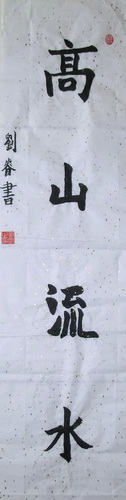 高山流水
劉睿書